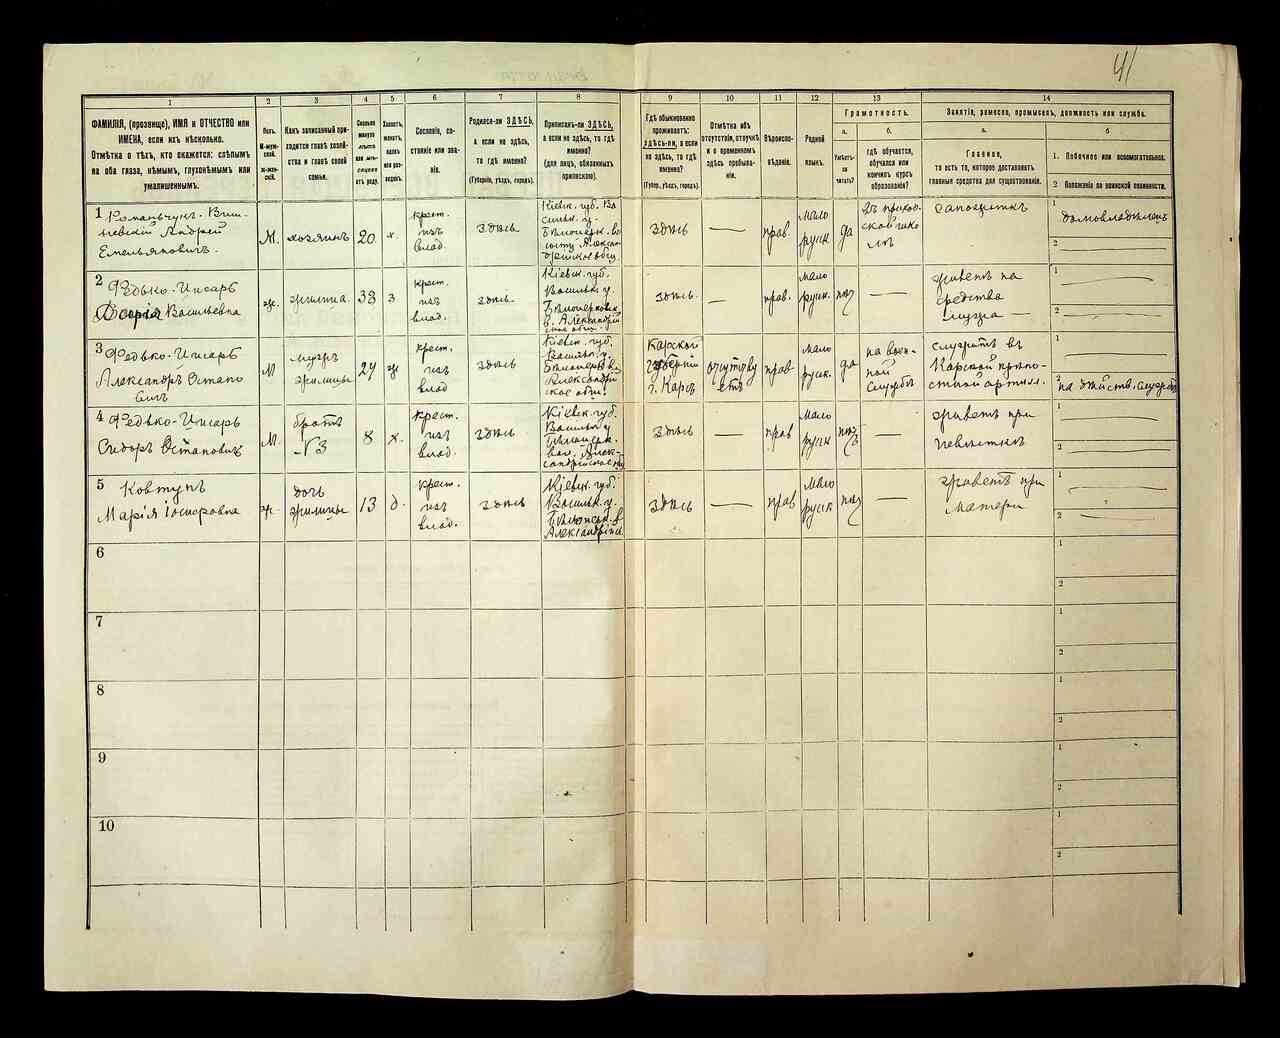 41
1
2
3
4
5
6
7
8
9
10
11
12
13
14
ФАМИЛІЯ, (прозвище), ИМЯ и ОТЧЕСТВО или
ИМЕНА, если ихъ нѣсколько.
Отмѣтка о тѣхъ, кто окажется: слѣпымъ
на оба глаза, нѣмымъ, глухонѣмымъ или
умалишеннымъ.
Полъ.
М-мужской.
ж-женскій.
Какъ записанный приходится
главѣ хозяйства
и главѣ своей
семьи.
Сколько
минуло
лѣтъ
или мѣсяцевъ
отъ роду.
Холостъ,
женатъ,
вдовъ
или разведенъ.
Сословіе, состояніе
или званіе.
Родился-ли ЗДѢСЬ,
а если не здѣсь,
то гдѣ именно?
(Губернія, уѣздъ, городъ).
Приписанъ-ли ЗДѢСЬ,
а если не здѣсь, то гдѣ
именно?
(для лицъ, обязанныхъ
припискою).
Гдѣ обыкновенно
проживаетъ:
здѣсь-ли, а если
не здѣсь, то гдѣ
именно?
(Губер., уѣздъ, городъ).
Отмѣтка объ
отсутствіи, отлучкѣ
и о временномъ
здѣсь пребываніи.
Вѣроисповѣданіе.
Родной
языкъ.
Грамотность.
а.
Умѣетъ-ли
читать?
б.
гдѣ обучается,
обучался или
кончилъ курсъ
образованія?
Занятіе, ремесло, промыселъ, должность или служба.
а.
Главное,
то есть то, которое доставляетъ
главныя средства для существованія.
б
1. Побочное или вспомогательное.
2 Положеніе по воинской повинности.
1
Романьчукъ-Вишневскій Андрей
Емельяновичъ.
М.
хозяинъ
20
х.
крест.
изъ
влад.
здѣсь
Кіевск. губ. Васильк. у.
здѣсь
—
прав.
мало
русск
да
въ приходской школѣ
сапожникъ
1
домовладѣлецъ
2
2
Федько-Писарь
Дарія Васильевна
ж.
жилица.
33
з
крест.
изъ
влад.
здѣсь.
Кіевск. губ.
Васильк. у.
здѣсь.
—
прав.
мало
русск.
нѣтъ
—
живетъ на
средства
мужа
1
2
3
Федько-Писарь
Александръ Остаповичъ
М
мужъ
жилицы
29
ж
крест.
изъ
влад
здѣсь
Кіевск. губ.
Васильк. у.
Карской
губерніи
г. Карсъ
отсутствуетъ
прав
мало
русск.
да
на военной
службѣ
служитъ въ
Карской крѣпостной артил.
1
2
на дѣйств. службѣ
4
Федько-Писарь
Сидоръ Остаповичъ
М.
братъ
№3
8
х.
крест.
изъ
влад.
здѣсь
Кіевск. губ.
Васильк. у
здѣсь
—
прав
мало
русск
нѣтъ
—
живетъ при
невѣсткѣ
1
2
5
Ковтунъ
Марія Іосифовна
ж.
дочь
жилицы
13
д.
крест.
изъ
влад.
здѣсь
Кіевск. губ.
Васильк. у.
здѣсь
—
прав
мало
русск
нѣтъ
—
живетъ при
матери
1
2
6
1
2
7
1
2
8
1
2
9
1
2
10
1
2